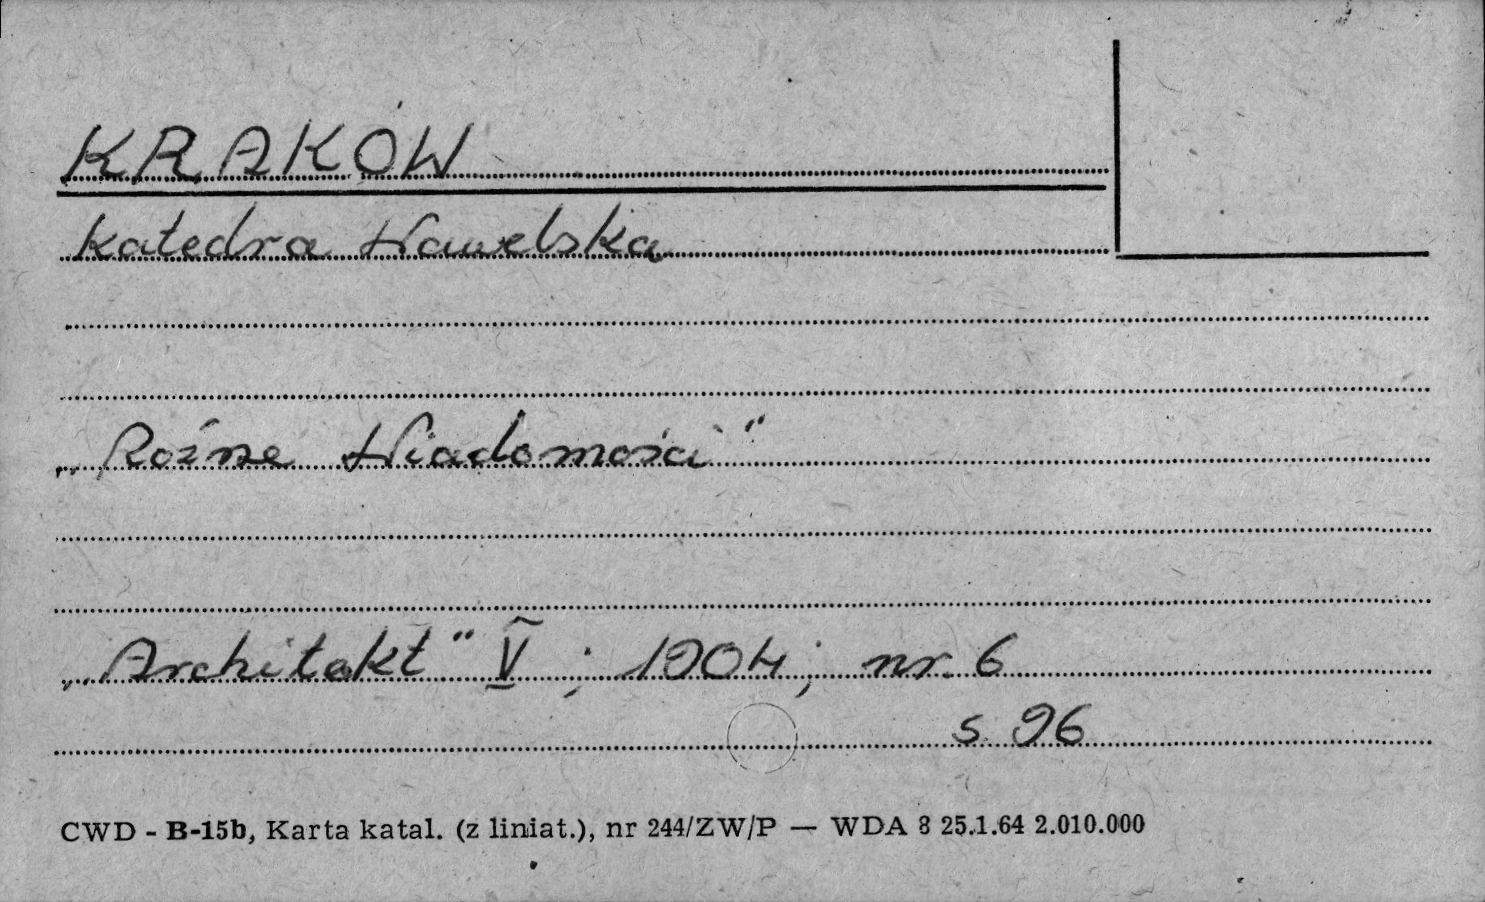 KRAKÓW
Katedra Wawelska
„Rożne Wiadomości"
„Architekt" V ; 1904; nr. 6
s. 96
CWD - B-15b, Karta katal. (z liniat.), nr 244/ZW/P — WDA 8 25.1.64 2.010.000